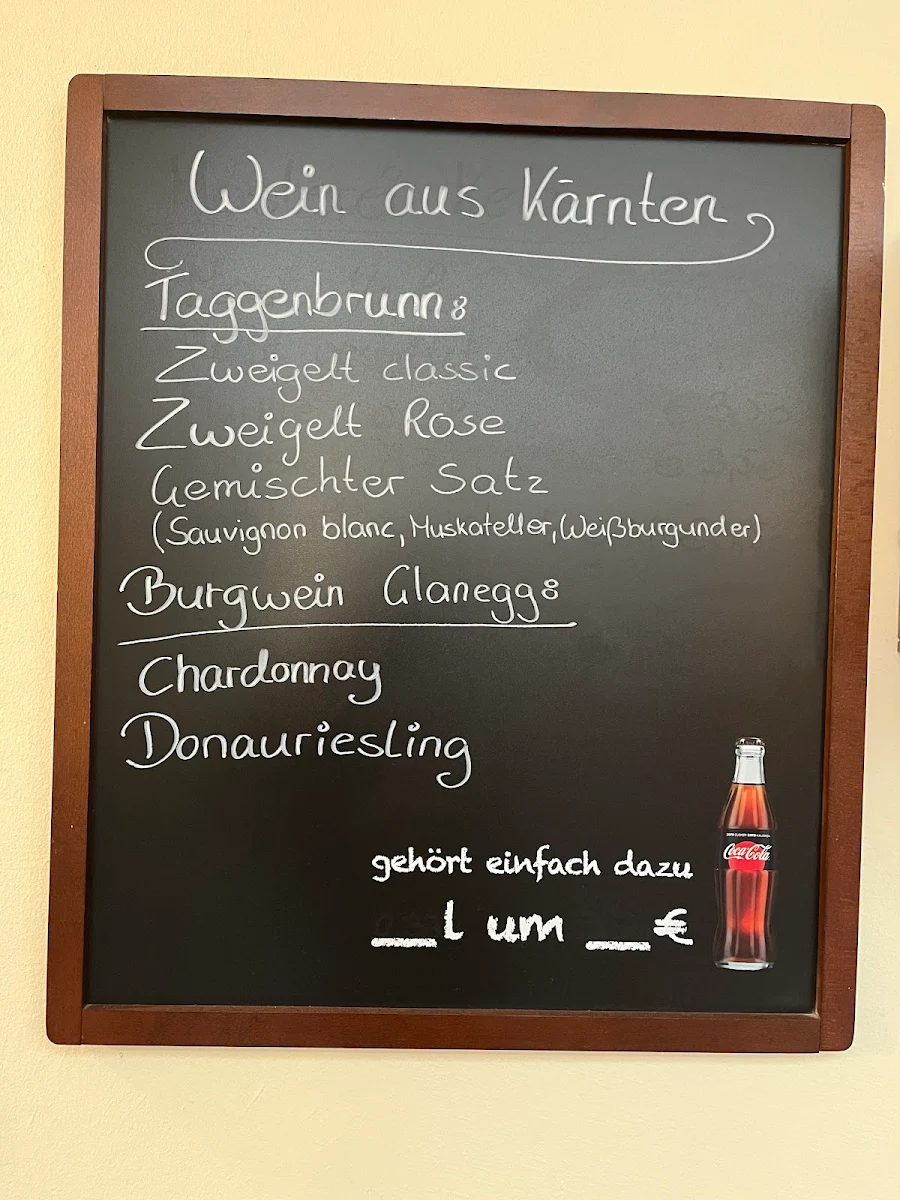 Wein aus Kärnten
Taggenbrunn:
Zweigelt classic
Zweigelt Rose
Gemischter Satz
(Sauvignon blanc, Muskateller, Weißburgunder)
Burgwein Glanegg:
Chardonnay
Donauriesling
gehört einfach dazu
__l um __€
Coca-Cola